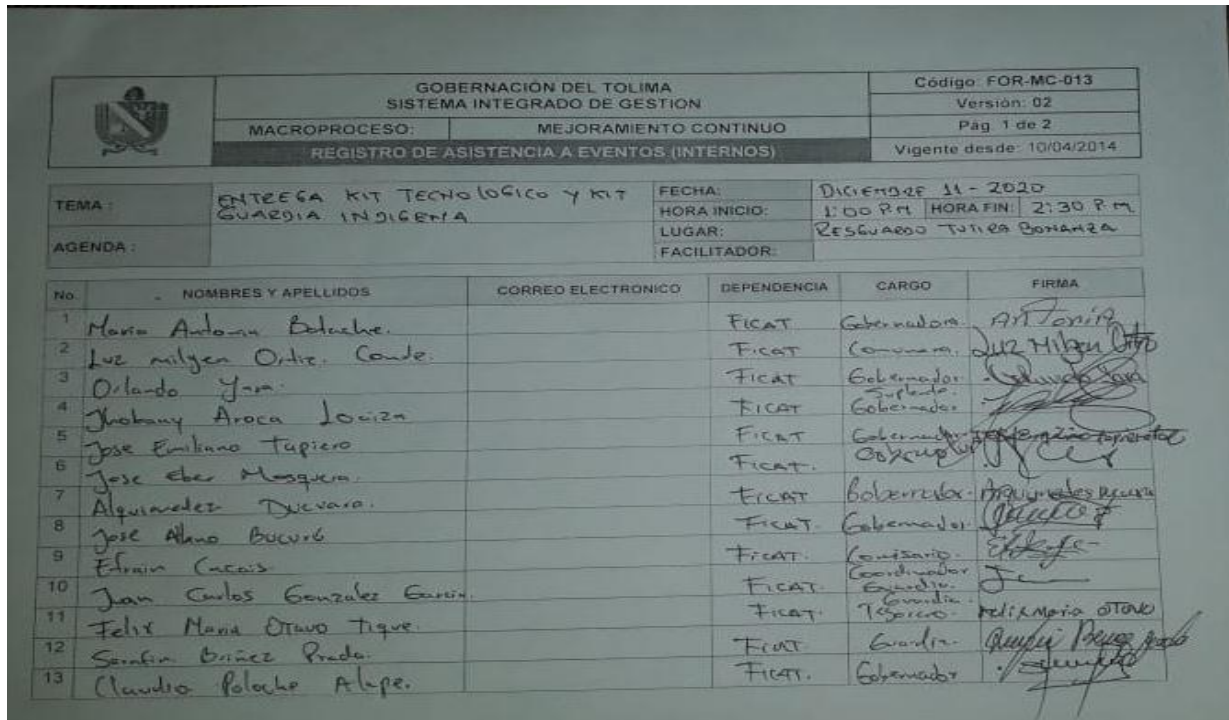 GOBERNACIÓN DEL TOLIMA
SISTEMA INTEGRADO DE GESTION
MACROPROCESO: MEJORAMIENTO CONTINUO
REGISTRO DE ASISTENCIA A EVENTOS (INTERNOS)
Código: FOR-MC-013
Versión: 02
Pág. 1 de 2
Vigente desde: 10/04/2014
TEMA : ENTREGA KIT TECNOLOGICO Y KIT
GUARDIA INDIGENA
AGENDA :
FECHA: DICIEMBRE 11 - 2020
HORA INICIO: 1:00 P.M HORA FIN: 2:30 P.M
LUGAR: RESGUARDO BONANZA
FACILITADOR:
No. NOMBRES Y APELLIDOS CORREO ELECTRONICO DEPENDENCIA CARGO FIRMA
1 Maria Antonia Bolache. FICAT Gobernadora Antonia
2 Luz milgen Ortiz. Conde. FICAT Comunera. Luz Milgen Ortiz
3 Orlando Yara. FICAT Gobernador Orlando Yara
4 Jhobany Aroca FICAT Suplente. Gobernador
5 Jose Emiliano Tapiero FICAT Gobernador
6 Jose Eber Mosquera. FICAT.
7 Alquimedez Ducuara. FICAT Gobernador Arquimedes Ducuara
8 Jose Bucuró FICAT. Gobernador
9 Efrain Cacais. FICAT. Comisario.
10 Juan Carlos Gonzalez Garcia. FICAT. Coordinador Guardia.
11 Felix Maria Otavo Tique. FICAT. Guardia. Tesorero. Felix Maria OTAVO
12 Serafin Briñez Prada. FICAT Guardia.
13 Claudio Poloche Alape. FICAT. Gobernador